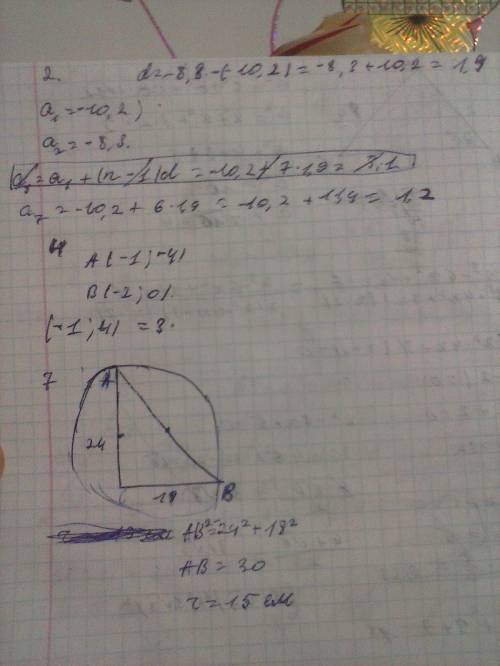 2. d=-8,8-(-10,2)=-8,3+10,2=1,9
a₁=-10,2)
a₂=-8,3.
a₇=a₁+(n-1)d=-10,2+7·1,9=3,1
a₇=-10,2+6·1,9=-10,2+11,4=1,2
4
A(-1;-4)
B(-2;0).
(-1;4)=3.
7
A
24
18 B
AB²=24²+18²
AB=30
r=15 см